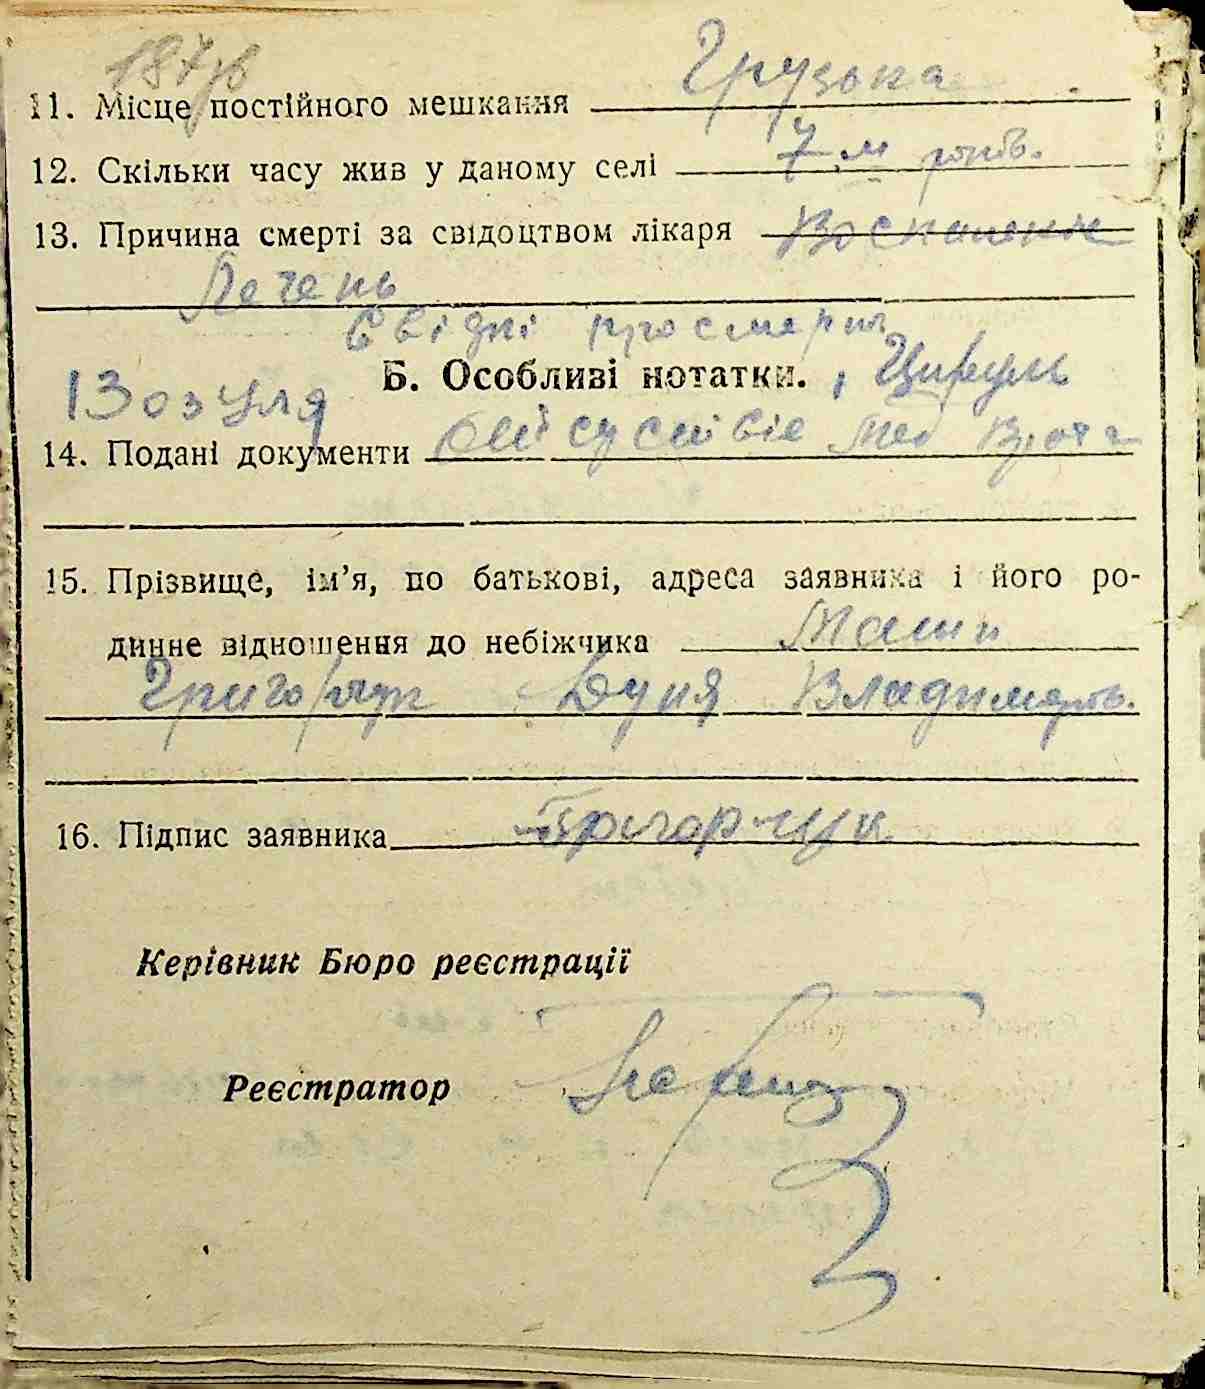 187зв
11. Місце постійного мешкання Грузька
12. Скільки часу жив у даному селі 7 м років.
13. Причина смерті за свідоцтвом лікаря Воспалєніє
Печень
Свідкі про смерть
Б. Особливі нотатки. , Цируль
1 Зозуля
14. Подані документи
15. Прізвище, ім’я, по батькові, адреса заявника і його ро-
динне відношення до небіжчика Мати
Григорчук Дуня Владимиров.
16. Підпис заявника Григорчук
Керівник Бюро реєстрації
Реєстратор